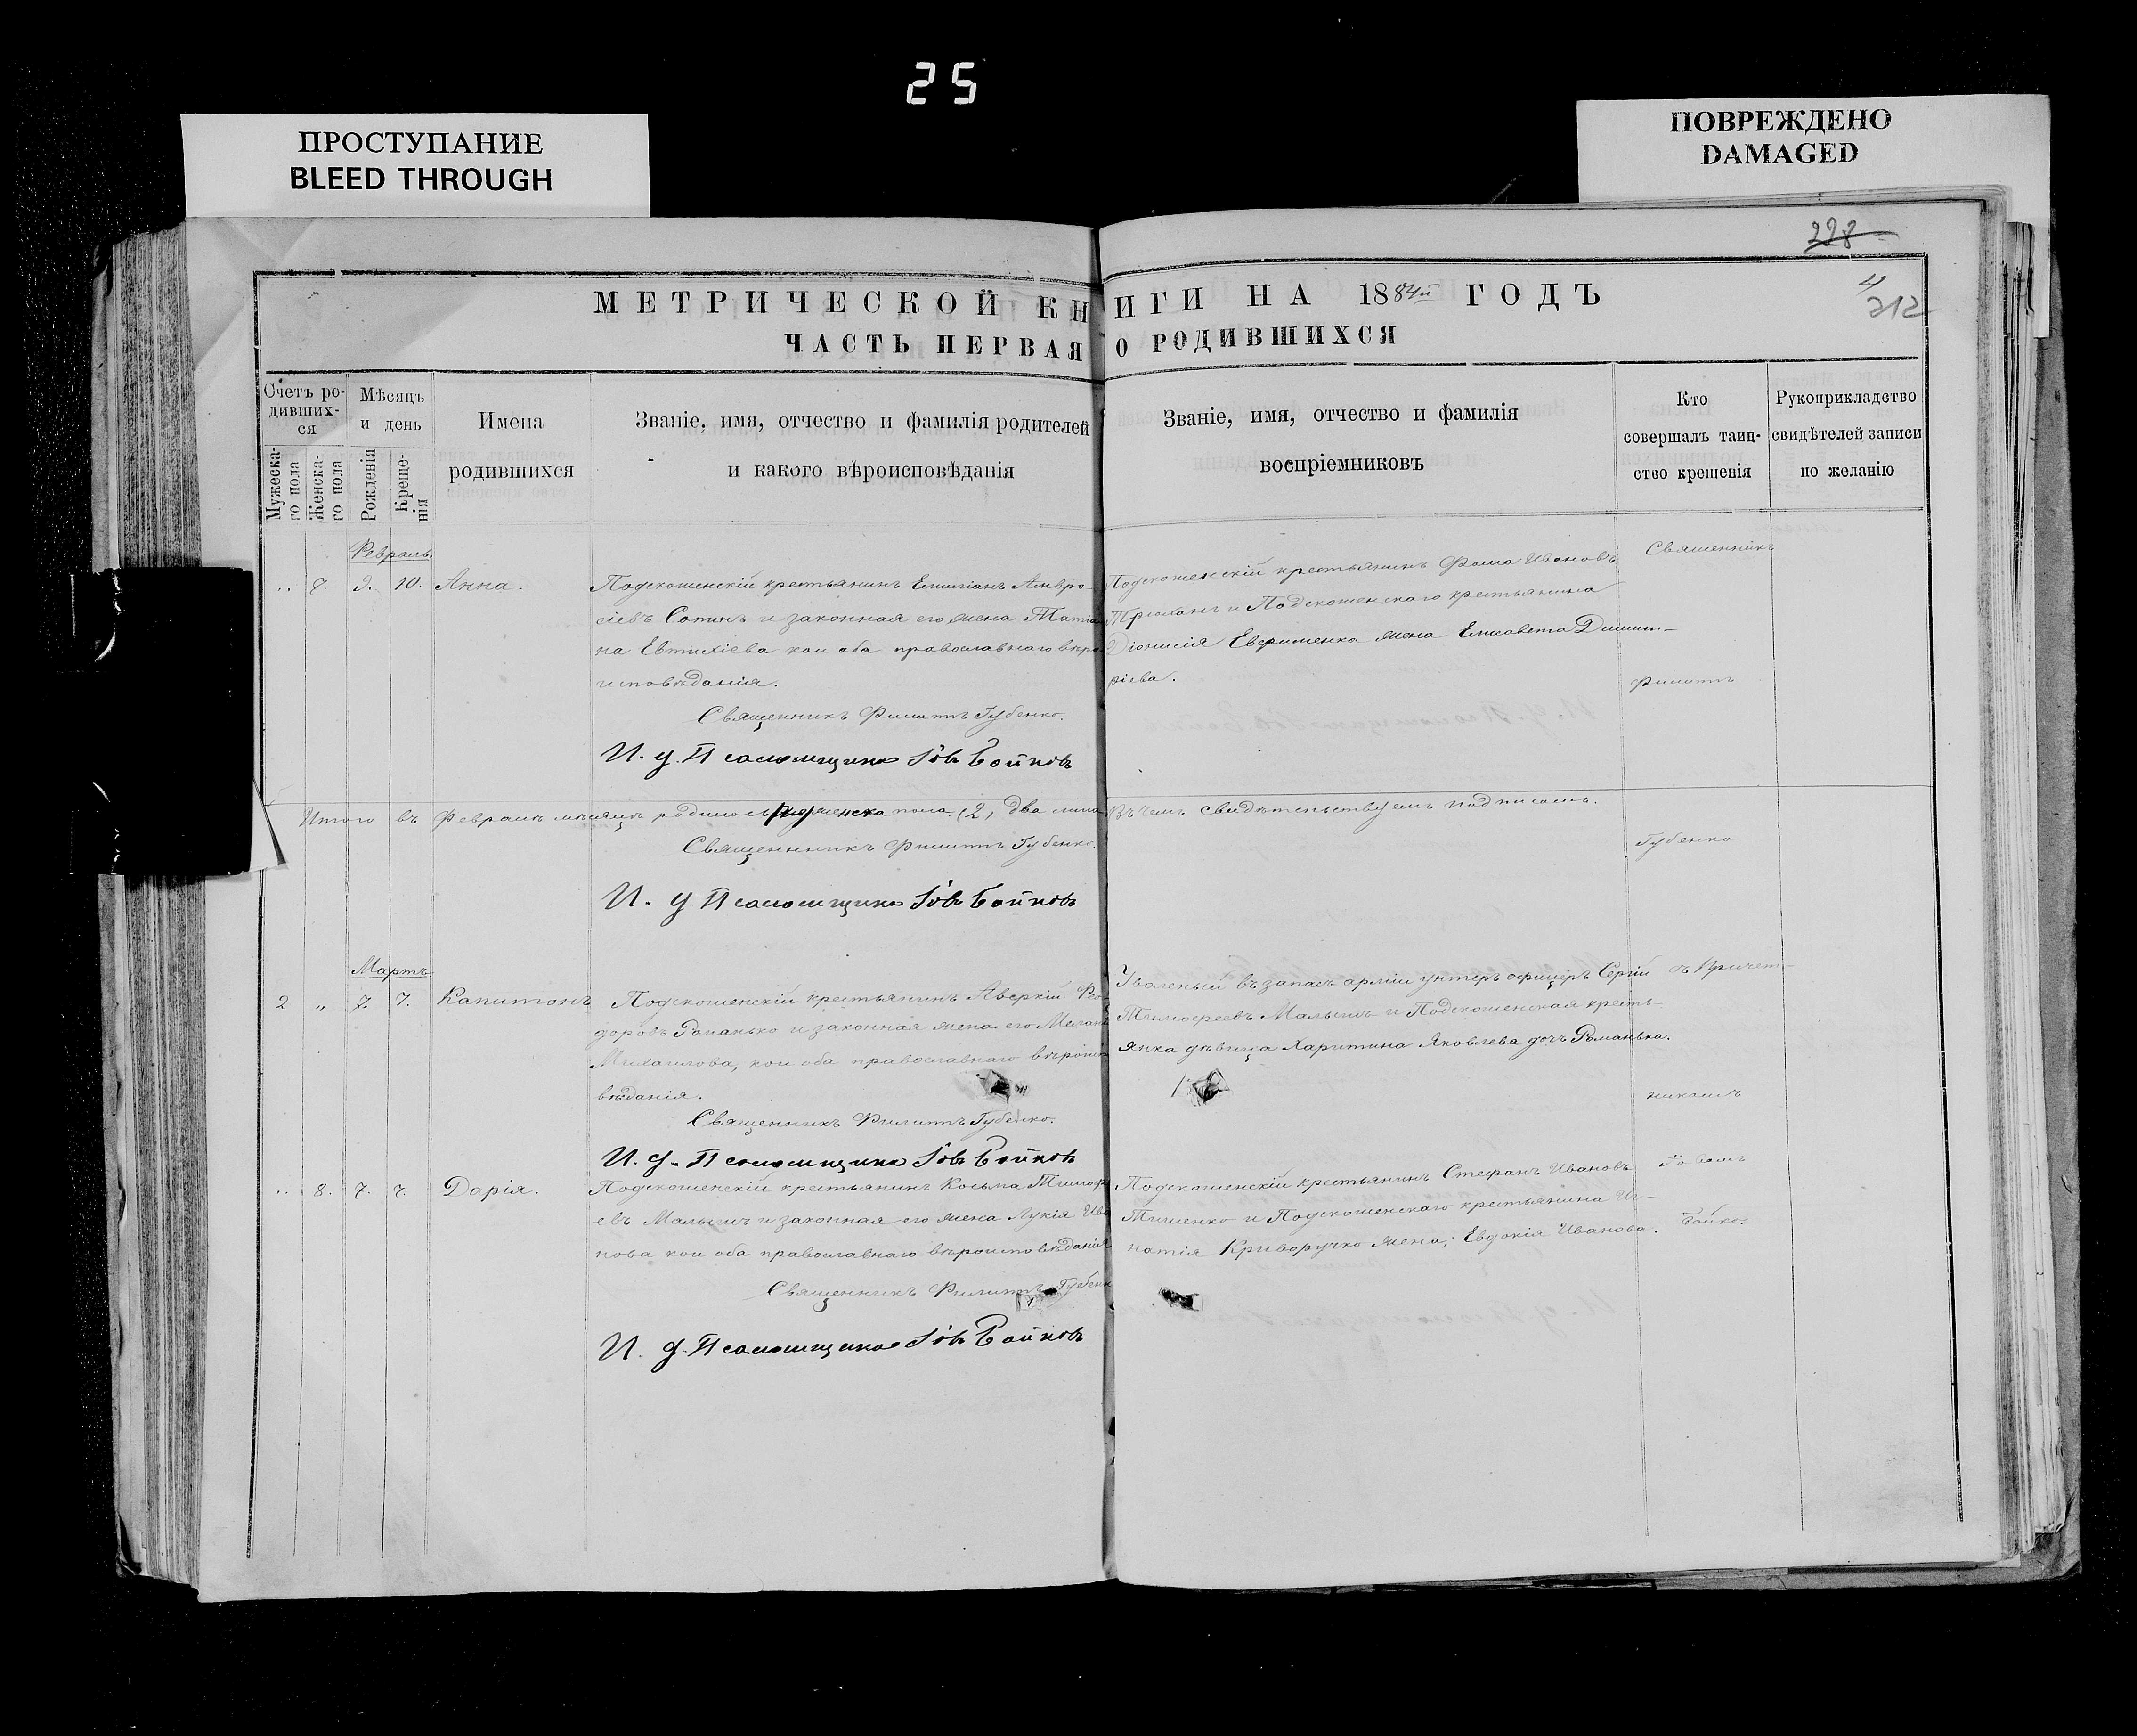 25
ПРОСТУПАНИЕ
BLEED THROUGH
ПОВРЕЖДЕНО
DAMAGED
228
4
212
МЕТРИЧЕСКОЙ КНИГИ НА 1884й ГОДЪ
ЧАСТЬ ПЕРВАЯ О РОДИВШИХСЯ
Счетъ ро-
дивших-
ся
Мужеска-
го пола
Женска-
го пола
Мѣсяцъ
и день
Рожденія
Креще-
нія
Имена
родившихся
Званіе, имя, отчество и фамилія родителей
и какого вѣроисповѣданія
Званіе, имя, отчество и фамилія
воспріемниковъ
Кто
совершалъ таин-
ство крещенія
Рукоприкладство
свидѣтелей записи
по желанію
Февраль.
„ 7. 9. 10. Анна.
Подскошенскій крестьянинъ Емиліанъ Амвро-
сіевъ Сопинъ и законная его жена Татіа
на Евтихіева кои оба православнаго вѣро
исповѣданія.
Священникъ Филиппъ Губенко.
И. д. Псаломщика Іовъ Бойковъ
Подскошенскій крестьянинъ Фома Ивановъ
и Подскошенскаго крестьянина
Діонисія Евфименка жена Елисавета Димит-
ріева.
Священникъ
Филиппъ
Итого въ Февралѣ мѣсяцѣ родилось женска пола (2) два лица
Въ чемъ свидѣтельствуемъ подписомъ.
Священникъ Филиппъ Губенко.
И. д Псаломщика Іовъ Бойковъ
Губенко
Мартъ.
2 „ 7. 7. Капитонъ
Подскошенскій крестьянинъ Аверкій Фео-
доровъ Романько и законная жена его Мелані
Михаилова, кои оба православнаго вѣроиспо
вѣданія.
Священникъ Филиппъ Губенко.
И. д. Псаломщика Іовъ Бойковъ
Уволеный въ запасъ арміи унтеръ офицеръ Сергій
Тимофеевъ Малышъ и Подскошенская кресть-
янка дѣвица Харитина Яковлева дочь Романька.
съ Причет-
никомъ
„ 8. 7. 7. Дарія.
Подскошенскій крестьянинъ Косьма Тимоф
евъ Малышъ и законная его жена Лукія Ива
нова кои оба православнаго вѣроисповѣданія
Священникъ Филиппъ Губенк
И. д. Псаломщика Іовъ Бойковъ
Подскошенскій крестьянинъ Стефанъ Ивановъ
Тименко и Подскошенскаго крестьянина Иг-
натія Криворучко жена; Евдокія Иванова.
Іовомъ
Бойко.